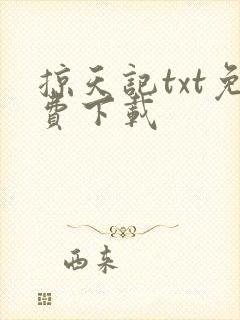 掠天記txt免
費下載
西來